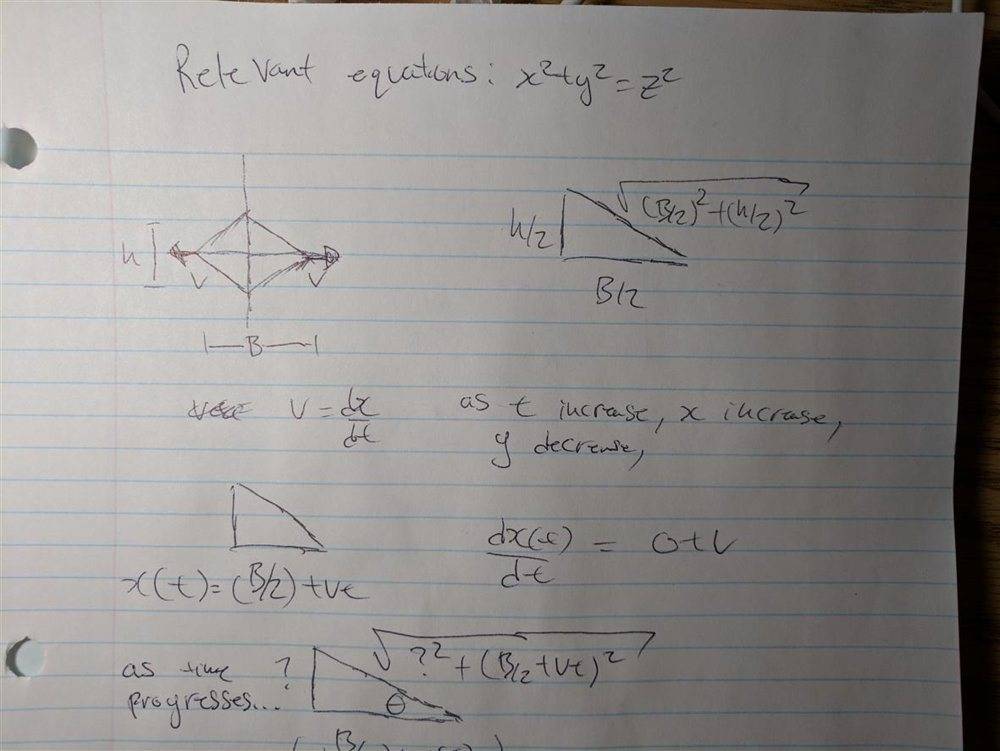 Relevant equations: x²+y²=z²
h
V V
B
h/2 √(B/2)²+(h/2)²
B/2
V = dx/dt as t increase, x increase,
y decrease,
x(t)=(B/2)+Vt dx(t)/dt = 0+V
as time
progresses... ? √?²+(B/2+Vt)²
θ